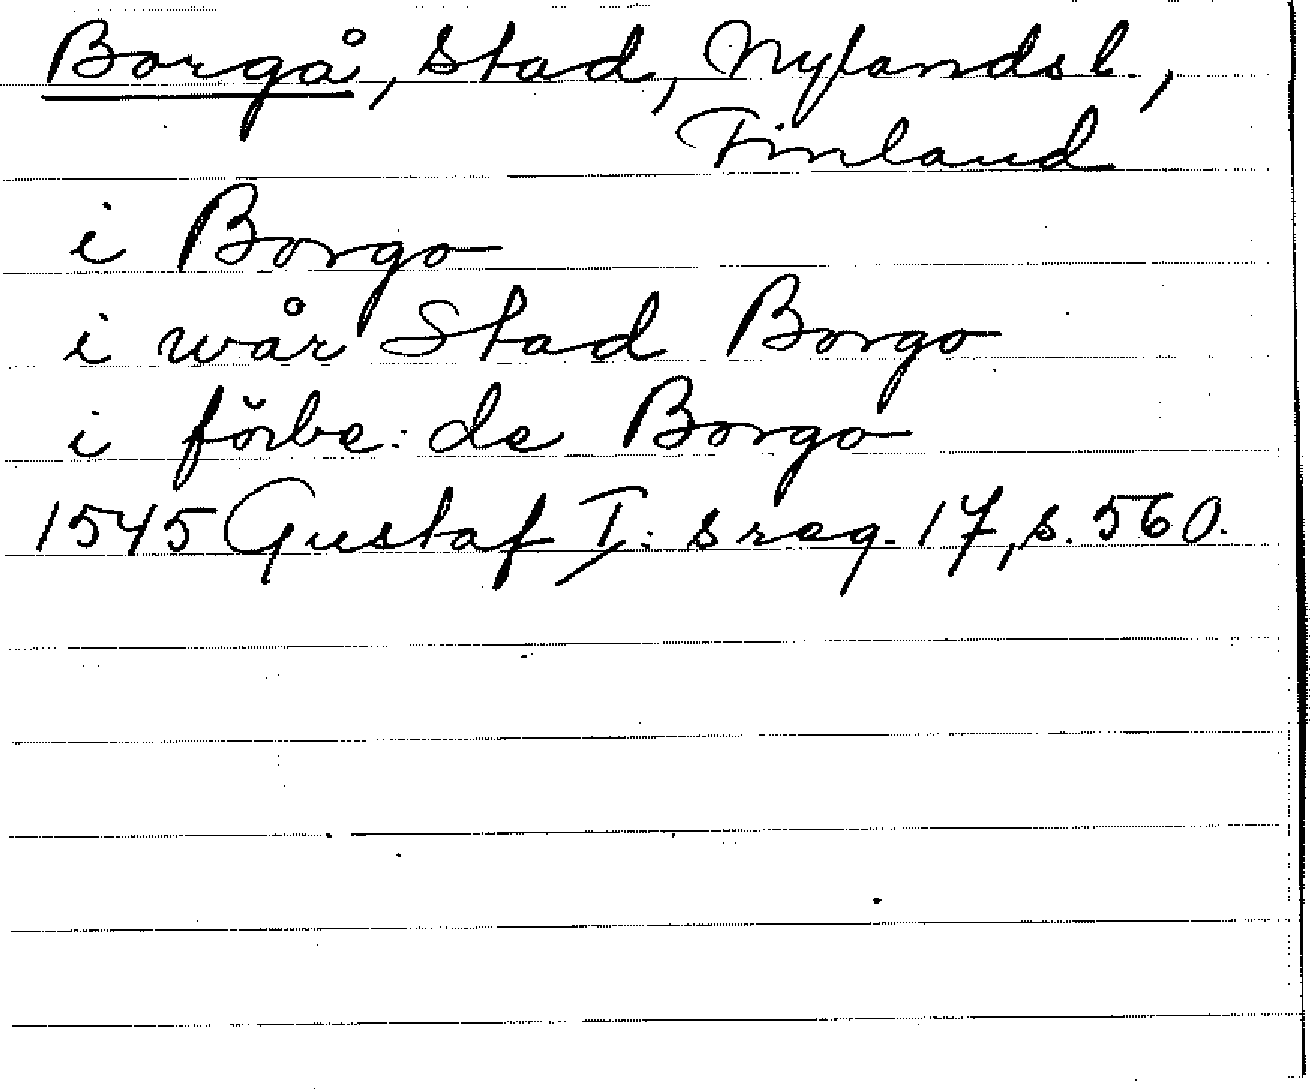 Borgå, Stad, Nylandsl.,
Finland
i Borgo
i wår Stad Borgo
i förbe: de Borgo
1545 Gustaf I: s reg. 17, s. 560.